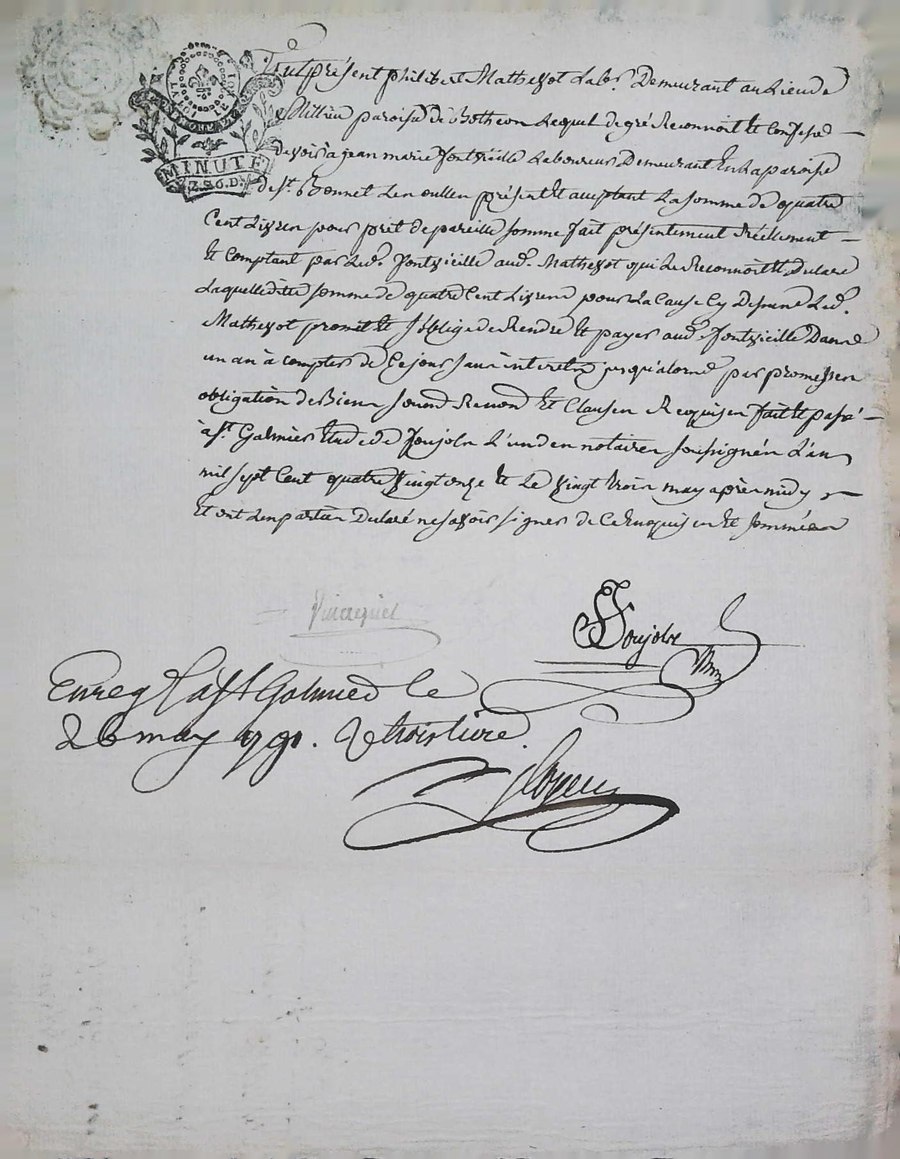 LA LOI ET LE ROI
MINUTE
7.S 6.D.
Fut présent philibert Mathevot Labr. Demeurant au Lieu de
paroisse de Botheon Lequel de gré Reconnoit et Confesse
devoir à jean marie fontvieille Laboureur Demeurant En La paroisse
de St. Bonnet Les oulles présent et acceptant La somme de quatre
Cent Livres pour prêt de pareille somme fait présentement Réellement
et Comptant par Led. fontvieille aud. Mathevot qui Le Reconnoit et Declare
Laquelle dite somme de quatre Cent Livres pour La Cause Cy dessus Led.
Mathevot promet et s'oblige de Rendre et payer aud. fontvieille Dans
un an à compter de Ce jour sans interets jusqu'alors par promesses
obligation de Biens soums. Renon. et Clauses Requises fait et passé
à St. Galmier Etude de Soujoln L'un des notaires soussignés L'an
mil sept Cent quatre vingt onze et Le vingt trois may après midy
Et ont Les parties Declaré ne savoir signer de Ce Enquises et sommées
Soujoln
Enreg. à St Galmier le
26 may 1791. R trois livre